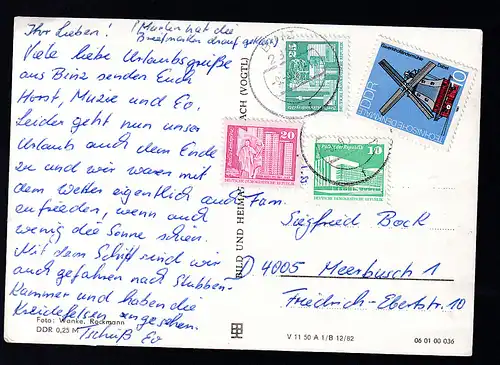 Ihr Lieben! (Marlen hat die
Briefmarken drauf geklebt)
Viele liebe Urlaubsgrüße
aus Binz senden Euch
Horst, und Ev.
Leider geht nun unser
Urlaub auch dem Ende
zu und wir waren mit
dem Wetter eigentlich auch
zufrieden, wenn auch
wenig die Sonne schien.
Mit dem Schiff sind wir
auch gefahren nach Stubben-
kammer und haben die
Kreidefelsen angesehen.
Tschüß Ev
Foto: Wanke, Rackmann
DDR 0,25 M
BILD UND HEIMAT
BACH (VOGTL)
Fam.
Siegfried Bock
D 4005 Meerbusch 1
Friedrich-Ebertstr. 10
V 11 50 A 1/B 12/82
06 01 00 036
BINZ
DDR
TECHNISCHE DENKMALE
10
20
DEUTSCHE DEMOKRATISCHE REPUBLIK
10
DEUTSCHE DEMOKRATISCHE REPUBLIK